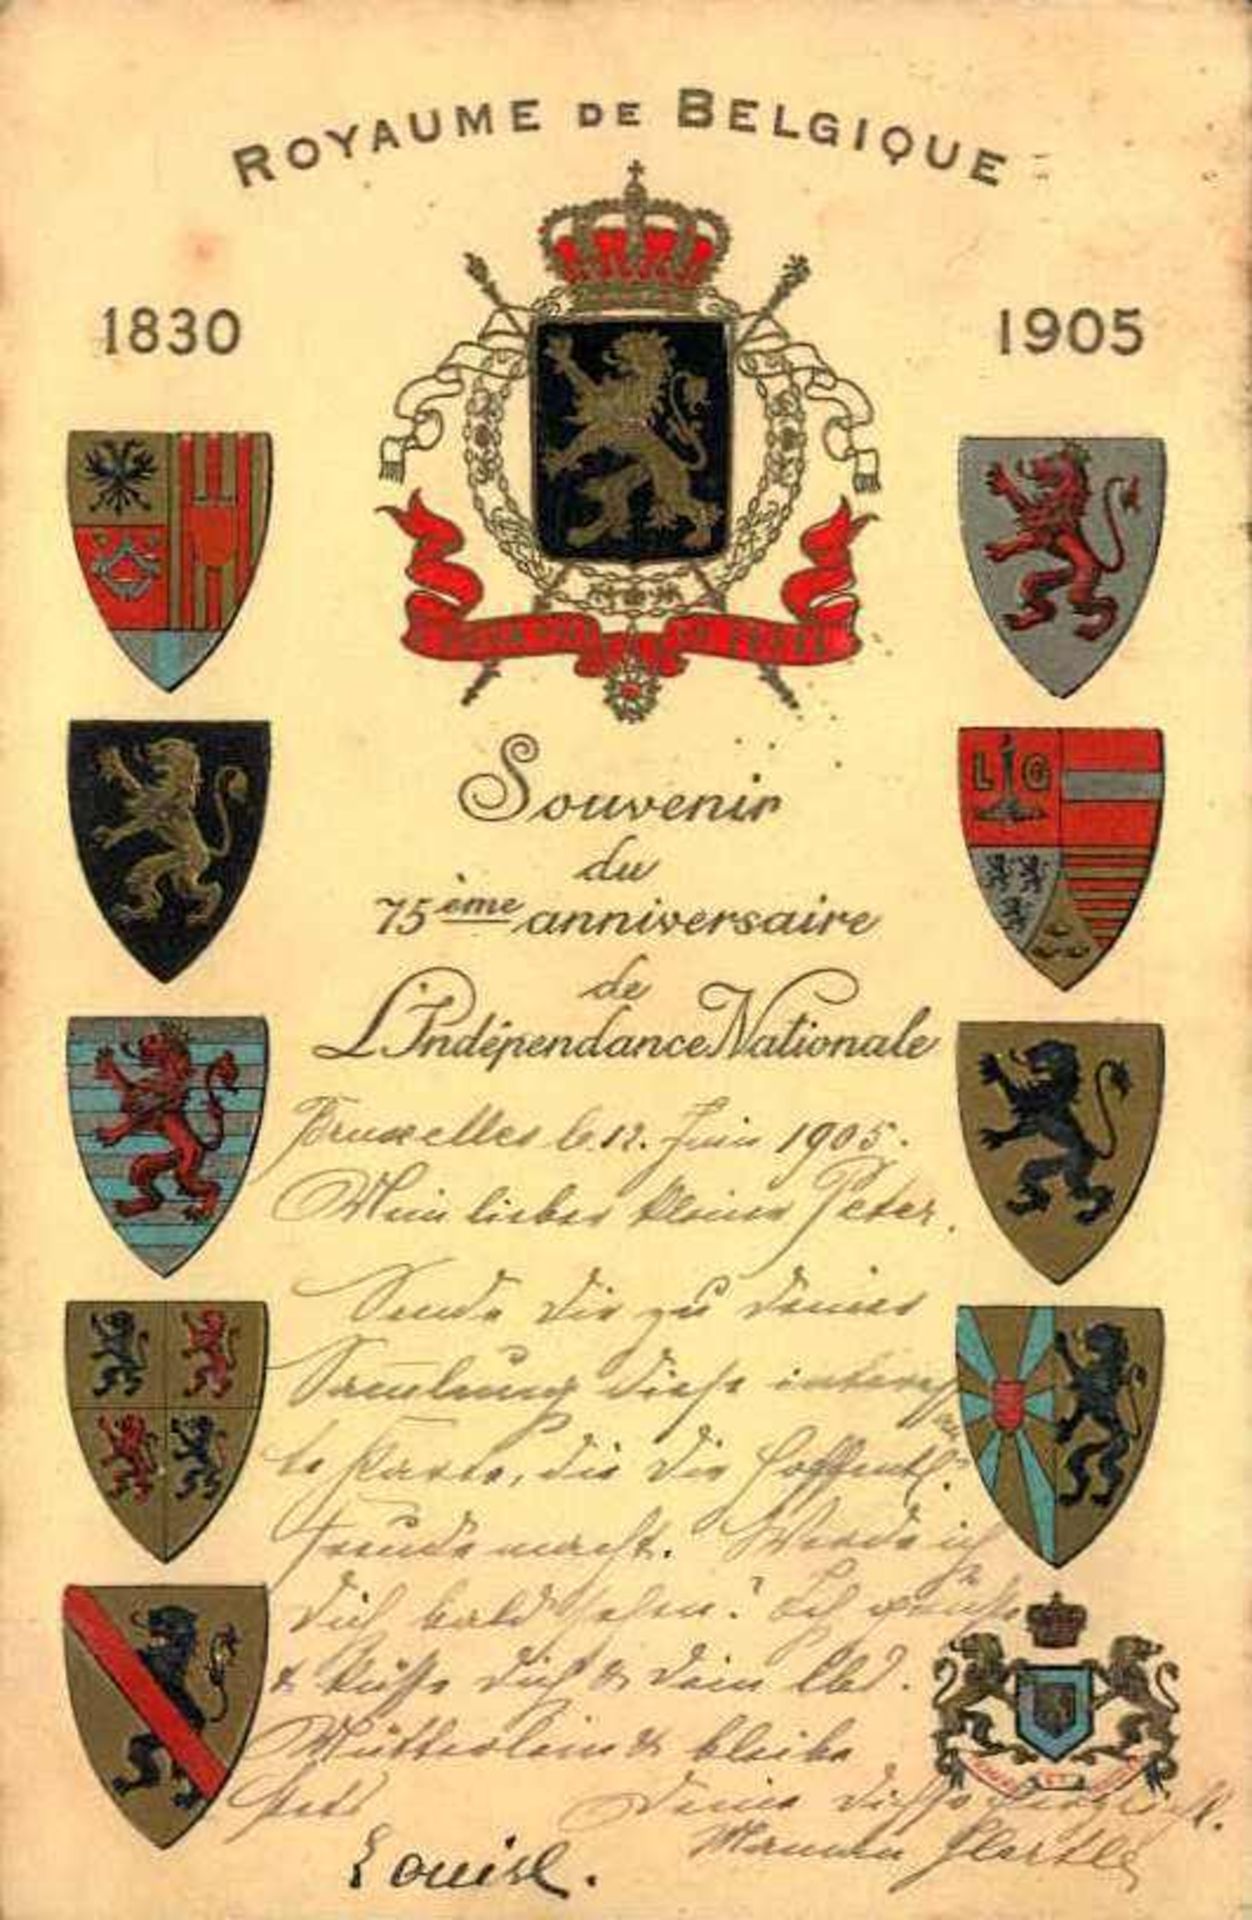 ROYAUME DE BELGIQUE
1830
1905
LIG
Souvenir
du
75ème anniversaire
de
L'Indépendance Nationale
Bruxelles le 12. Juin 1905.
Mein lieber kleiner Peter.
Sende Dir zu deiner
Sammlung diese interess
te Karte, die Dir hoffentl.
Freude macht. Werde ich
Dich bald sehen? Ich grüsse
& küsse Dich & Dein lbs.
Mütterlein & bleibe
stets
Deine Dich
Louise.